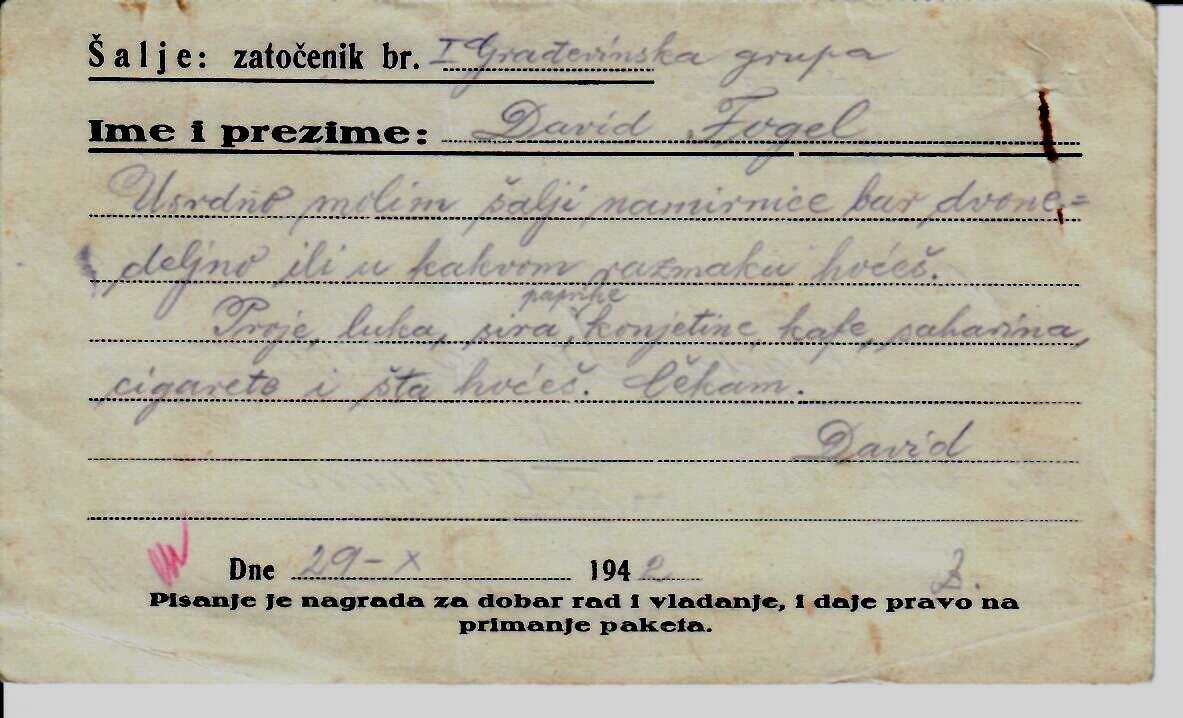 Šalje: zatočenik br. I Građevinska grupa
Ime i prezime: David Fogel
Usrdno molim šalji namirnice bar dvone=
deljno ili u kakvom razmaku hoćeš.
paprike
Proje, luka, sira, konjetine, kafe, saharina,
cigarete i šta hoćeš. Čekam.
David
Dne 29-X 1942
Pisanje je nagrada za dobar rad i vladanje, i daje pravo na
primanje paketa.